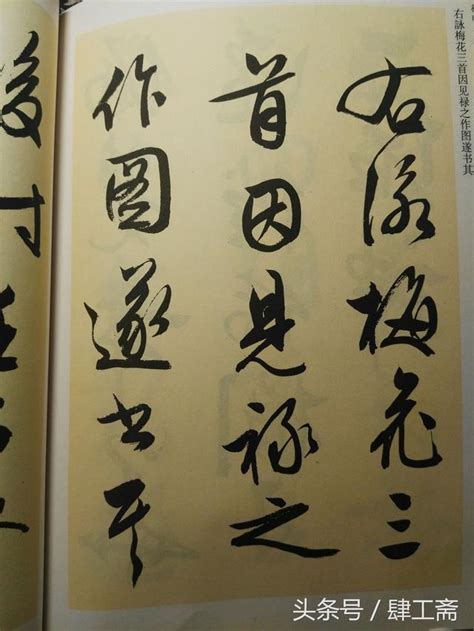 右詠梅花三首因见禄之作图遂书其
右詠梅花三
首因見禄之
作圖遂書其
头条号 / 肆工斋